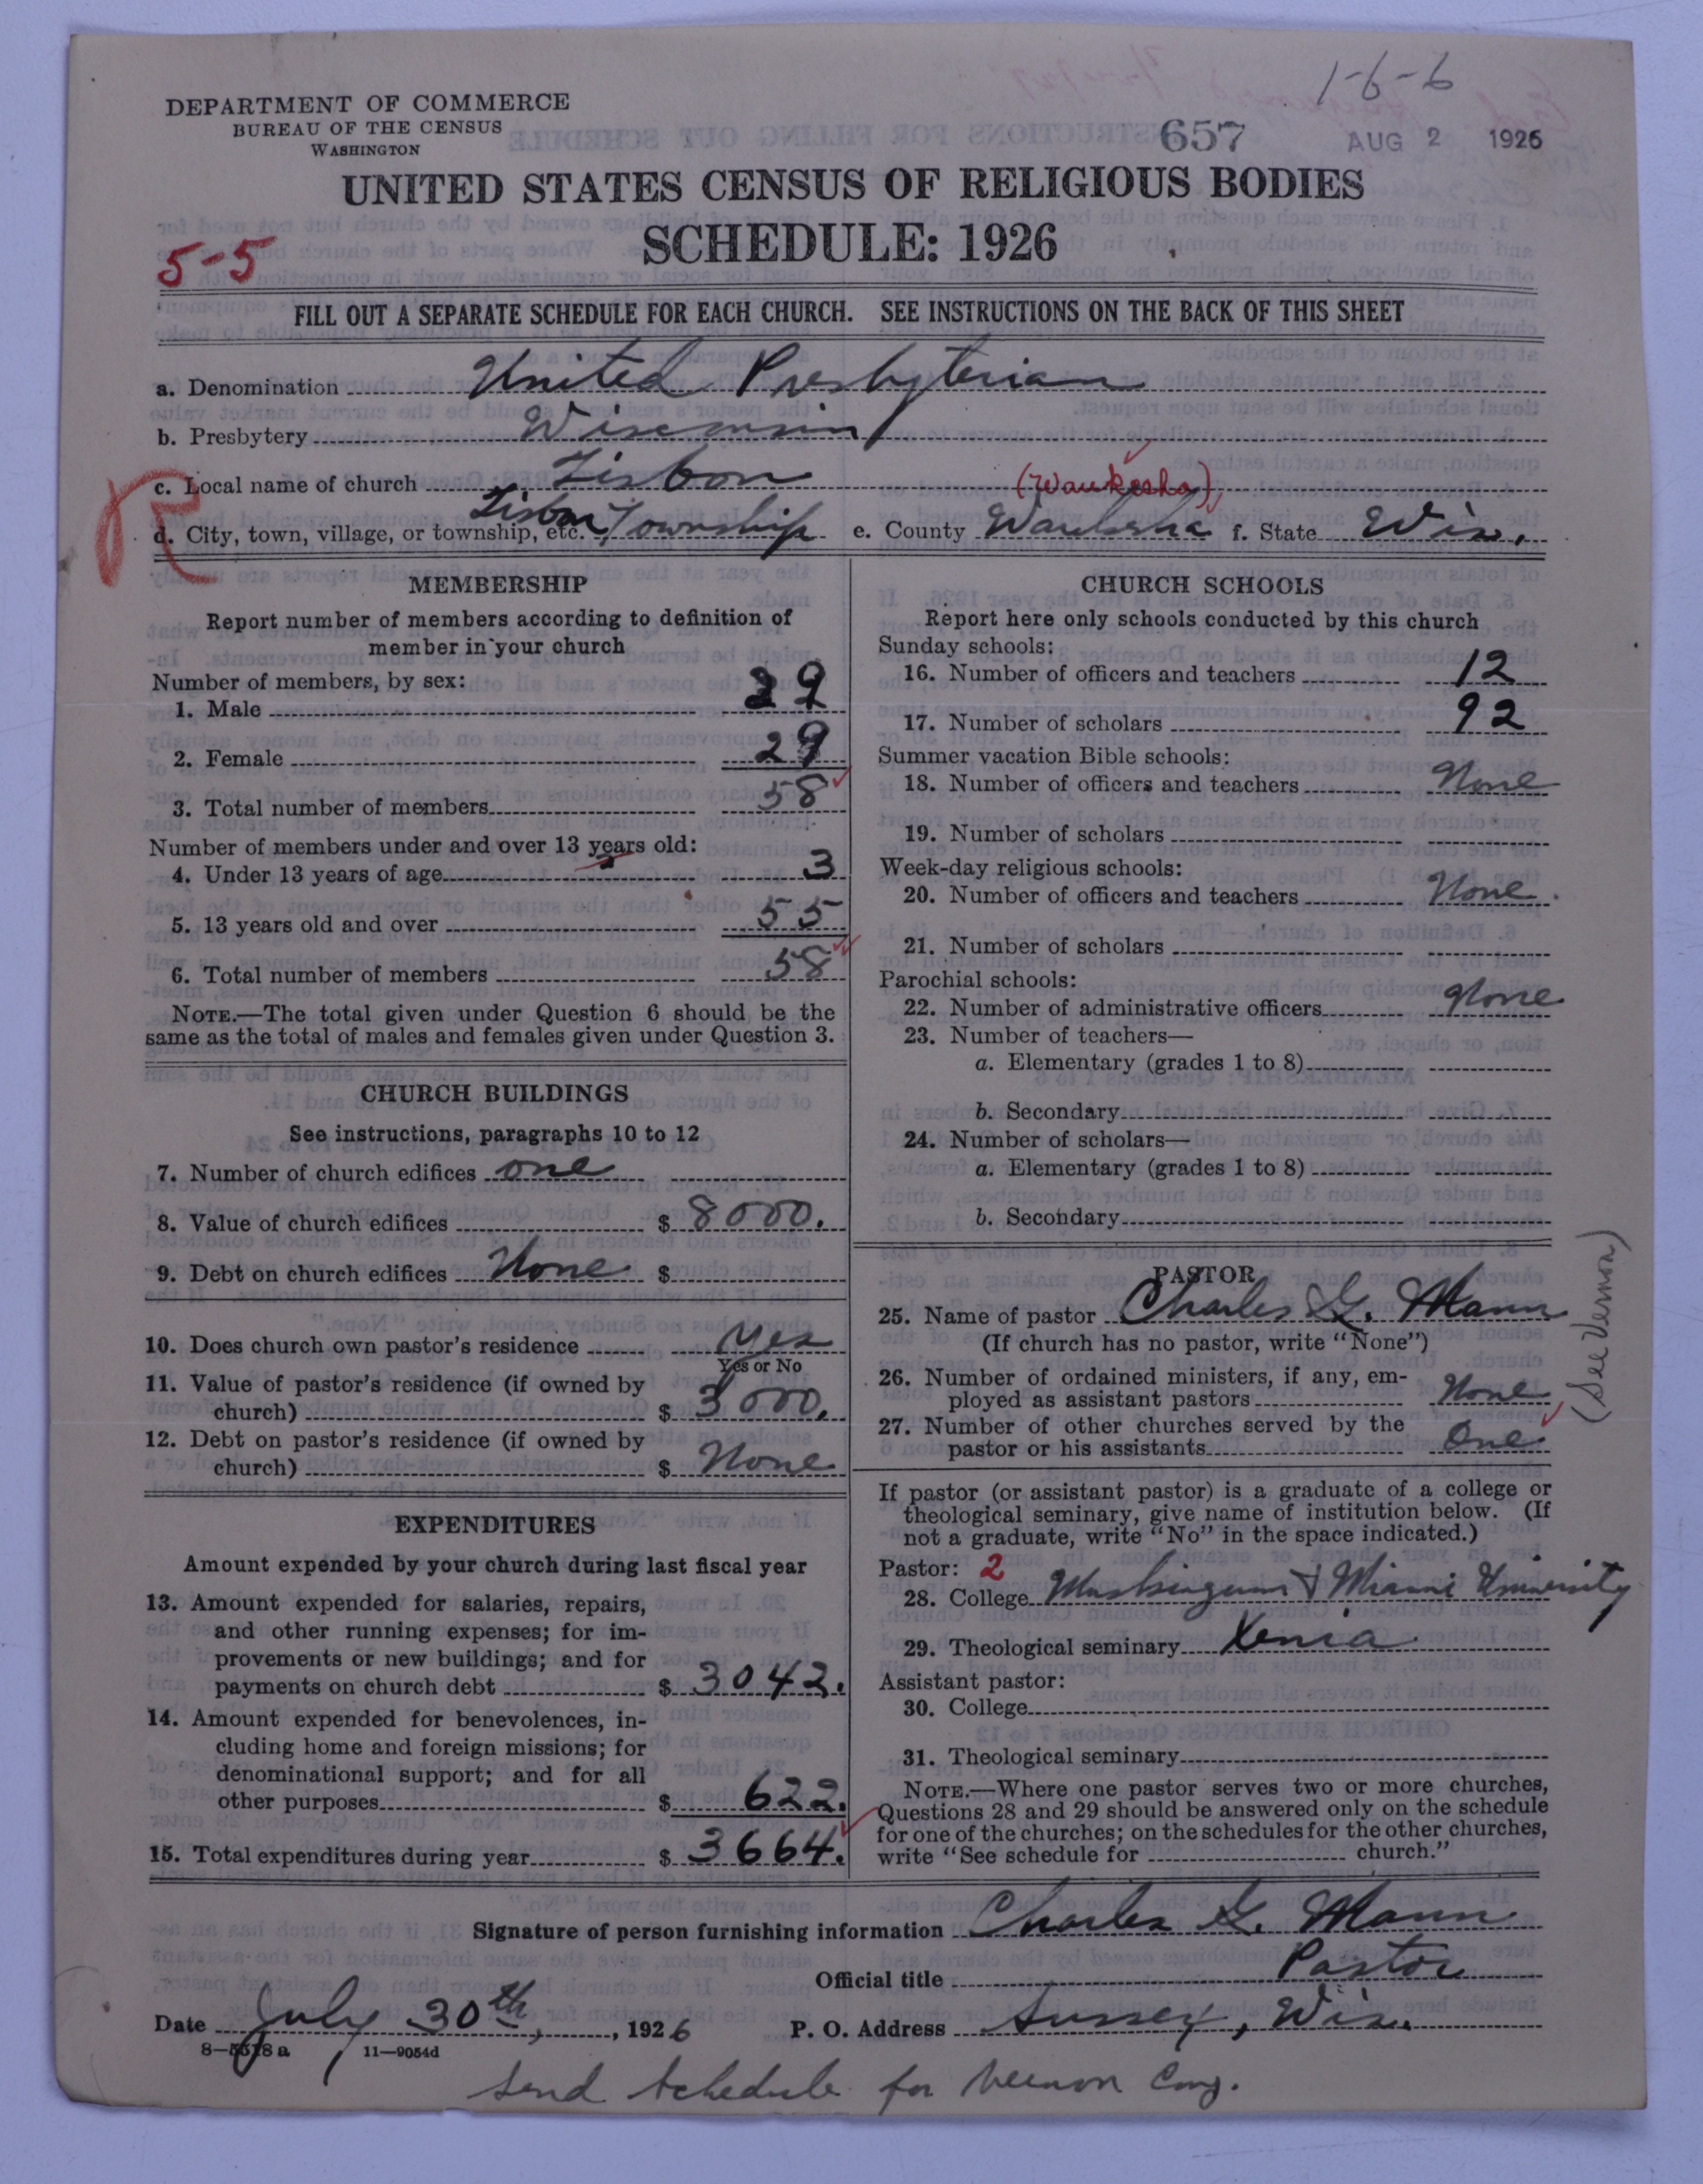 1-6-6
DEPARTMENT OF COMMERCE
BUREAU OF THE CENSUS
WASHINGTON
657
AUG 2 1926
UNITED STATES CENSUS OF RELIGIOUS BODIES
SCHEDULE: 1926
5-5
FILL OUT A SEPARATE SCHEDULE FOR EACH CHURCH. SEE INSTRUCTIONS ON THE BACK OF THIS SHEET
a. Denomination United Presbyterian
b. Presbytery Wisconsin
c. Local name of church Lisbon (Waukesha)
R
d. City, town, village, or township, etc. Lisbon Township e. County Waukesha f. State Wis.
MEMBERSHIP
Report number of members according to definition of
member in your church
Number of members, by sex:
1. Male 29
2. Female 29
3. Total number of members 58
Number of members under and over 13 years old:
4. Under 13 years of age 3
5. 13 years old and over 55
6. Total number of members 58
NOTE.—The total given under Question 6 should be the
same as the total of males and females given under Question 3.
CHURCH BUILDINGS
See instructions, paragraphs 10 to 12
7. Number of church edifices one
8. Value of church edifices $ 8000.
9. Debt on church edifices None $
10. Does church own pastor's residence Yes
Yes or No
11. Value of pastor's residence (if owned by
church) $ 3000.
12. Debt on pastor's residence (if owned by
church) $ None
EXPENDITURES
Amount expended by your church during last fiscal year
13. Amount expended for salaries, repairs,
and other running expenses; for im-
provements or new buildings; and for
payments on church debt $ 3042.
14. Amount expended for benevolences, in-
cluding home and foreign missions; for
denominational support; and for all
other purposes $ 622.
15. Total expenditures during year $ 3664.
CHURCH SCHOOLS
Report here only schools conducted by this church
Sunday schools:
16. Number of officers and teachers 12
17. Number of scholars 92
Summer vacation Bible schools:
18. Number of officers and teachers None
19. Number of scholars
Week-day religious schools:
20. Number of officers and teachers None
21. Number of scholars
Parochial schools:
22. Number of administrative officers None
23. Number of teachers—
a. Elementary (grades 1 to 8)
b. Secondary
24. Number of scholars—
a. Elementary (grades 1 to 8)
b. Secondary
PASTOR
25. Name of pastor Charles G. Mann
(If church has no pastor, write "None")
26. Number of ordained ministers, if any, em-
ployed as assistant pastors None
27. Number of other churches served by the
pastor or his assistants One
(See Vernon)
If pastor (or assistant pastor) is a graduate of a college or
theological seminary, give name of institution below. (If
not a graduate, write "No" in the space indicated.)
Pastor: 2
28. College Muskingum & Miami University
29. Theological seminary Xenia
Assistant pastor:
30. College
31. Theological seminary
NOTE.—Where one pastor serves two or more churches,
Questions 28 and 29 should be answered only on the schedule
for one of the churches; on the schedules for the other churches,
write "See schedule for church."
Signature of person furnishing information Charles G. Mann
Official title Pastor
Date July 30th, 1926 P. O. Address Sussex, Wis.
8—5518a 11—9054d
Send schedule for Vernon Cong.